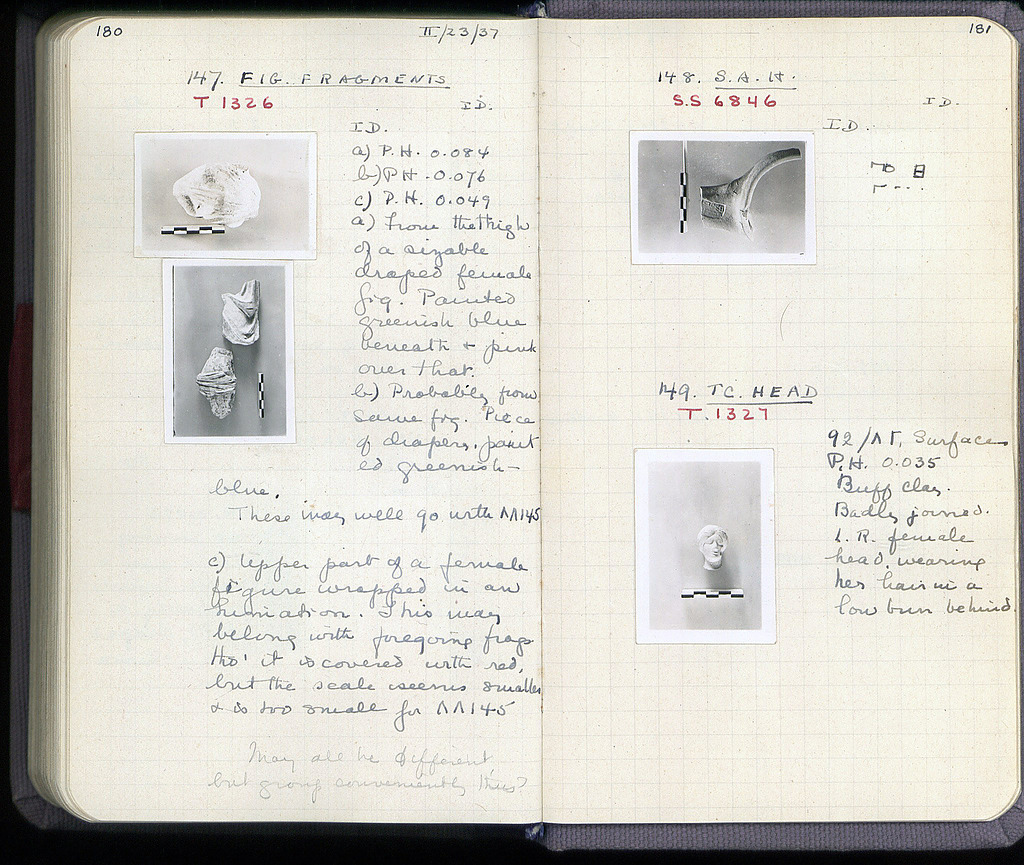 180
II/23/37
147. FIG. FRAGMENTS
T 1326
ID.
ID.
a) P.H. 0.084
b) PH. 0.076
c) P.H. 0.049
a) From the thigh
of a sizable
draped female
fig. Painted
greenish blue
beneath + pink
over that.
b) Probably from
same fig. Piece
of drapery, paint
ed greenish-
blue.
These may well go with ΛΛ145
c) Upper part of a female
figure wrapped in an
himation. This may
belong with foregoing frags
tho' it is covered with red,
but the scale seems smaller
+ is too small for ΛΛ145
May all be different
but group conveniently thus?
181
148. S.A.H.
SS 6846
ID.
ID.
149. TC. HEAD
T. 1327
92/ΛΓ, Surface
P.H. 0.035
Buff clay.
Badly joined.
L. R. female
head, wearing
her hair in a
low bun behind.